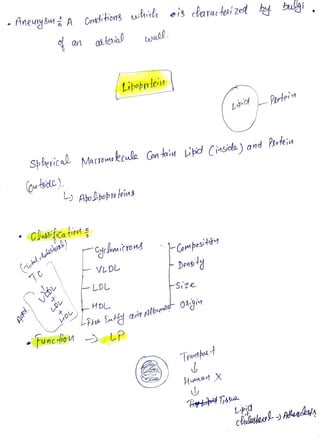 • Aneurysm : A Conditions which is characterized by bulgi
of an arterial wall.
Lipoprotein
Lipid
Protein
Spherical Macromolecule Contain Lipid (inside) and Protein
(outside).
↳ Apolipoproteins
• Classification :
(Total cholesterol)
T.C
VLDL
+
LDL
+
HDL
Cyclomicrons
VLDL
LDL
HDL
Free Fatty acid Albumin
Composition
Density
Size
Origin
• Function → LP
Transport
↓
Human X
↓
Tissue
Lipid
cholesterol →